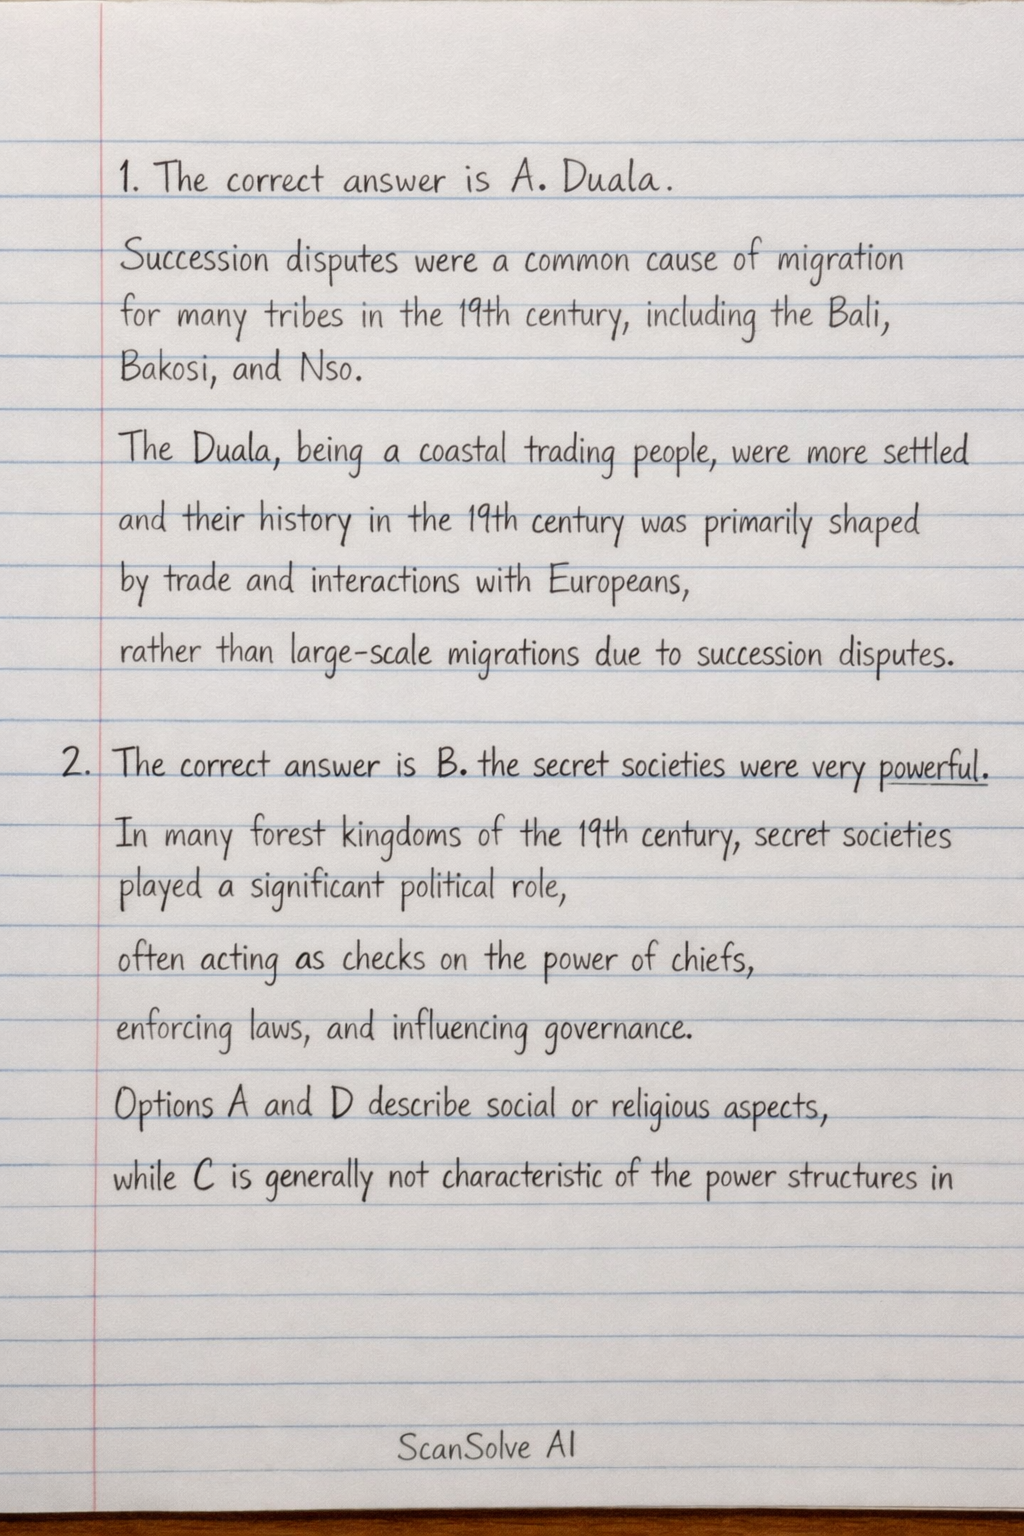 1. The correct answer is A. Duala.
Succession disputes were a common cause of migration
for many tribes in the 19th century, including the Bali,
Bakosi, and Nso.
The Duala, being a coastal trading people, were more settled
and their history in the 19th century was primarily shaped
by trade and interactions with Europeans,
rather than large-scale migrations due to succession disputes.
2. The correct answer is B. the secret societies were very powerful.
In many forest kingdoms of the 19th century, secret societies
played a significant political role,
often acting as checks on the power of chiefs,
enforcing laws, and influencing governance.
Options A and D describe social or religious aspects,
while C is generally not characteristic of the power structures in
ScanSolve AI